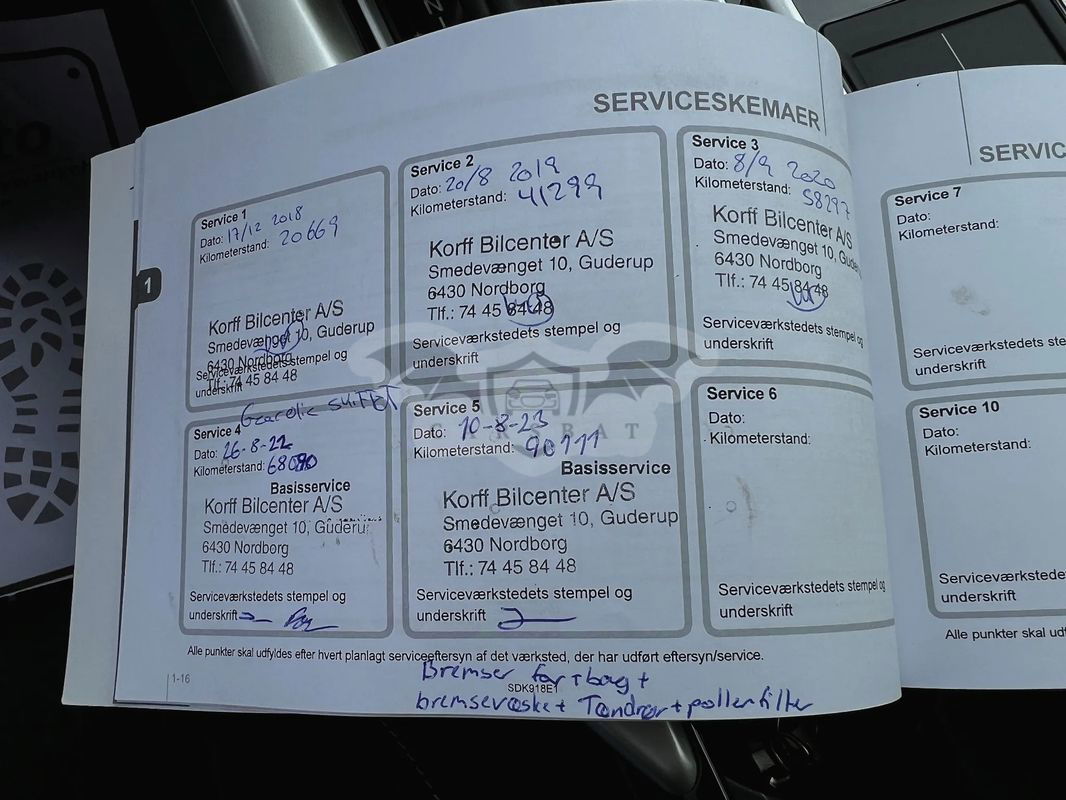 SERVICESKEMAER
Service 1
Dato: 17/12 2018
Kilometerstand: 20669
Korff Bilcenter A/S
Smedevænget 10, Guderup
6430 Nordborg
Tlf.: 74 45 84 48
Serviceværkstedets stempel og
underskrift
Service 2
Dato: 20/8 2019
Kilometerstand: 41299
Korff Bilcenter A/S
Smedevænget 10, Guderup
6430 Nordborg
Tlf.: 74 45 84 48
Serviceværkstedets stempel og
underskrift
Service 3
Dato: 8/9 2020
Kilometerstand: 58297
Korff Bilcenter A/S
Smedevænget 10, Guderup
6430 Nordborg
Tlf.: 74 45 84 48
Serviceværkstedets stempel og
underskrift
Service 4
Dato: 26-8-22
Kilometerstand:
Basisservice
Korff Bilcenter A/S
Smedevænget 10, Guderup
6430 Nordborg
Tlf.: 74 45 84 48
Serviceværkstedets stempel og
underskrift
Service 5
Dato: 10-8-23
Kilometerstand: 90111
Basisservice
Korff Bilcenter A/S
Smedevænget 10, Guderup
6430 Nordborg
Tlf.: 74 45 84 48
Serviceværkstedets stempel og
underskrift
Service 6
Dato:
Kilometerstand:
Serviceværkstedets stempel og
underskrift
Alle punkter skal udfyldes efter hvert planlagt serviceeftersyn af det værksted, der har udført eftersyn/service.
Bremser for + bag +
bremsevæske + Tændrør + pollenfilter
1-16
SDK918E1
1
CARSBAT
SERVIC
Service 7
Dato:
Kilometerstand:
Serviceværkstedets stem
underskrift
Service 10
Dato:
Kilometerstand:
Serviceværkstede
underskrift
Alle punkter skal ud